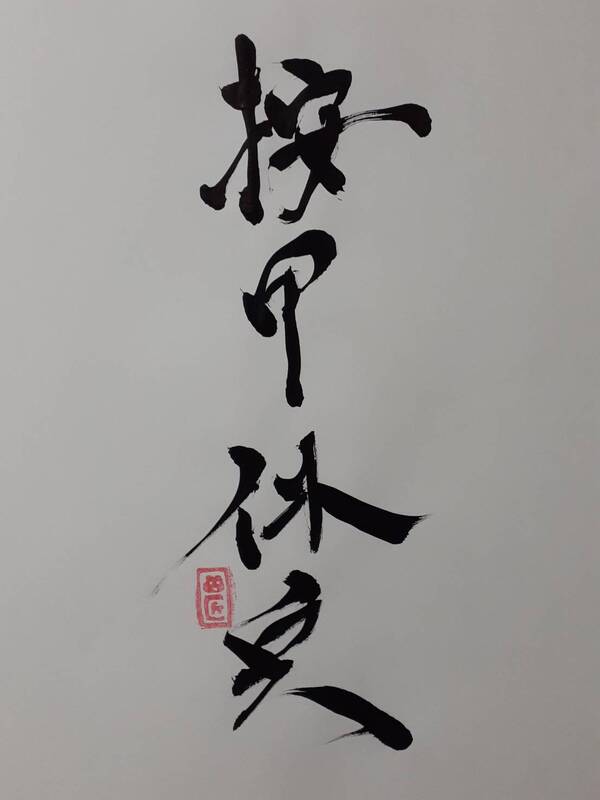 按甲休兵